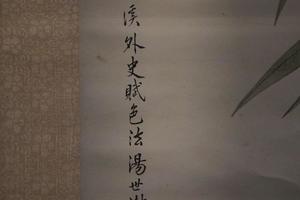 溪外史賦色法湯世澍